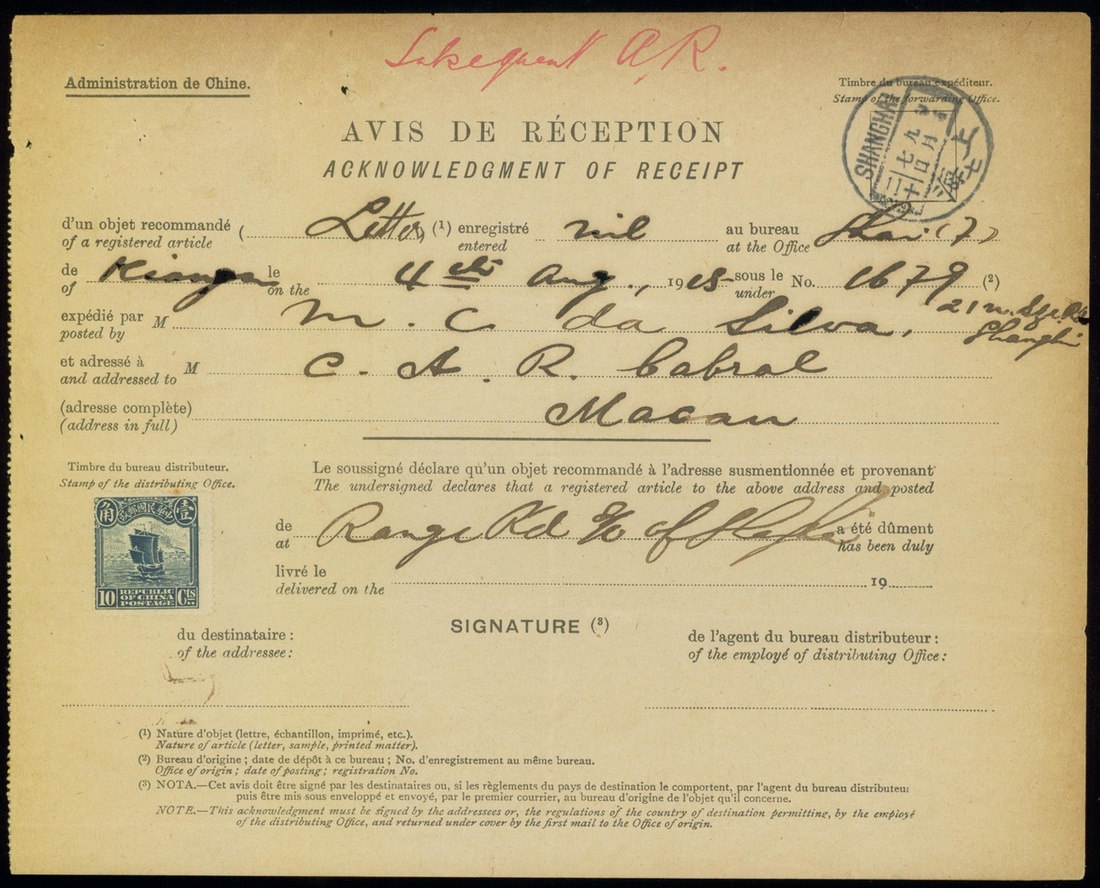 Subsequent A.R.
Administration de Chine.
Timbre du bureau expéditeur.
Stamp of the forwarding Office.
SHANGHAI
上海
AVIS DE RÉCEPTION
ACKNOWLEDGMENT OF RECEIPT
d'un objet recommandé ( Letter, (1) enregistré nil au bureau Shai (7)
of a registered article entered at the Office
de le 4th Aug., 1915 sous le No. 1679 (2)
of on the under
expédié par M M. C da Silva, 21
posted by Shanghai
et adressé à M C. A. R. Cabral
and addressed to
(adresse complète) Macau
(address in full)
Timbre du bureau distributeur.
Stamp of the distributing Office.
Le soussigné déclare qu'un objet recommandé à l'adresse susmentionnée et provenant
The undersigned declares that a registered article to the above address and posted
角 中華民國郵政 壹
10 REPUBLIC OF CHINA POSTAGE CTS
de Range Rd a été dûment
at has been duly
livré le 19
delivered on the
SIGNATURE (3)
du destinataire :
of the addressee:
de l'agent du bureau distributeur :
of the employé of distributing Office :
(1) Nature d'objet (lettre, échantillon, imprimé, etc.).
Nature of article (letter, sample, printed matter).
(2) Bureau d'origine ; date de dépôt à ce bureau ; No. d'enregistrement au même bureau.
Office of origin ; date of posting ; registration No.
(3) NOTA.—Cet avis doit être signé par les destinataires ou, si les règlements du pays de destination le comportent, par l'agent du bureau distributeur
puis être mis sous enveloppé et envoyé, par le premier courrier, au bureau d'origine de l'objet qu'il concerne.
NOTE.—This acknowledgment must be signed by the addressees or, the regulations of the country of destination permitting, by the employé
of the distributing Office, and returned under cover by the first mail to the Office of origin.